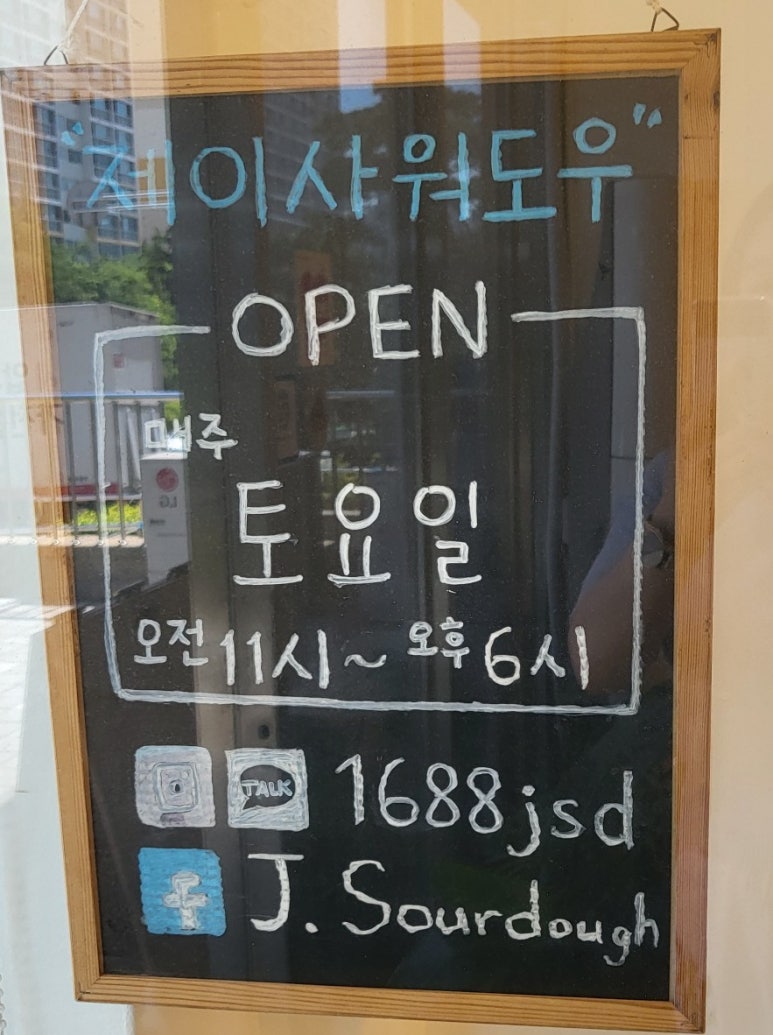 "제이사워도우"
OPEN
매주
토요일
오전 11시 ~ 오후 6시
TALK 1688jsd
f J. Sourdough
LG